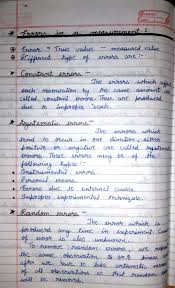 * Errors in a measurement :
Error = True value - measured value
Different type of errors are :
* Constant errors -
The errors which affect
each observation by the same amount are
called constant errors. These are produced
due to improper scale.
* Systematic errors -
The errors which
tend to occur in one direction, either
positive or negative are called systematic
errors. These errors may be of the
following type :-
Instrumental errors.
Personal errors.
Errors due to external causes.
Improper experimental techniques.
* Random errors -
The errors which is
produced any time in experiment. Cause
of error is also unknown.
To remove random errors, we repeat
the same observation 5 or 6 times
after we have to take arithmetic mean
of all observations so that random
will be removed.